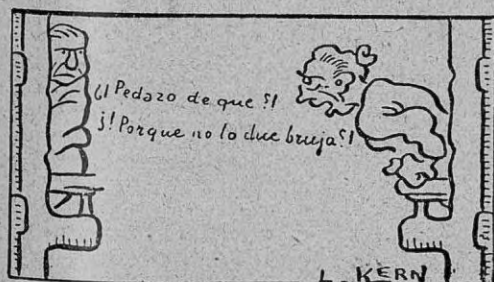 ¿! Pedazo de que ?!
¡! Porque no lo dice bruja ?!
L. KERN